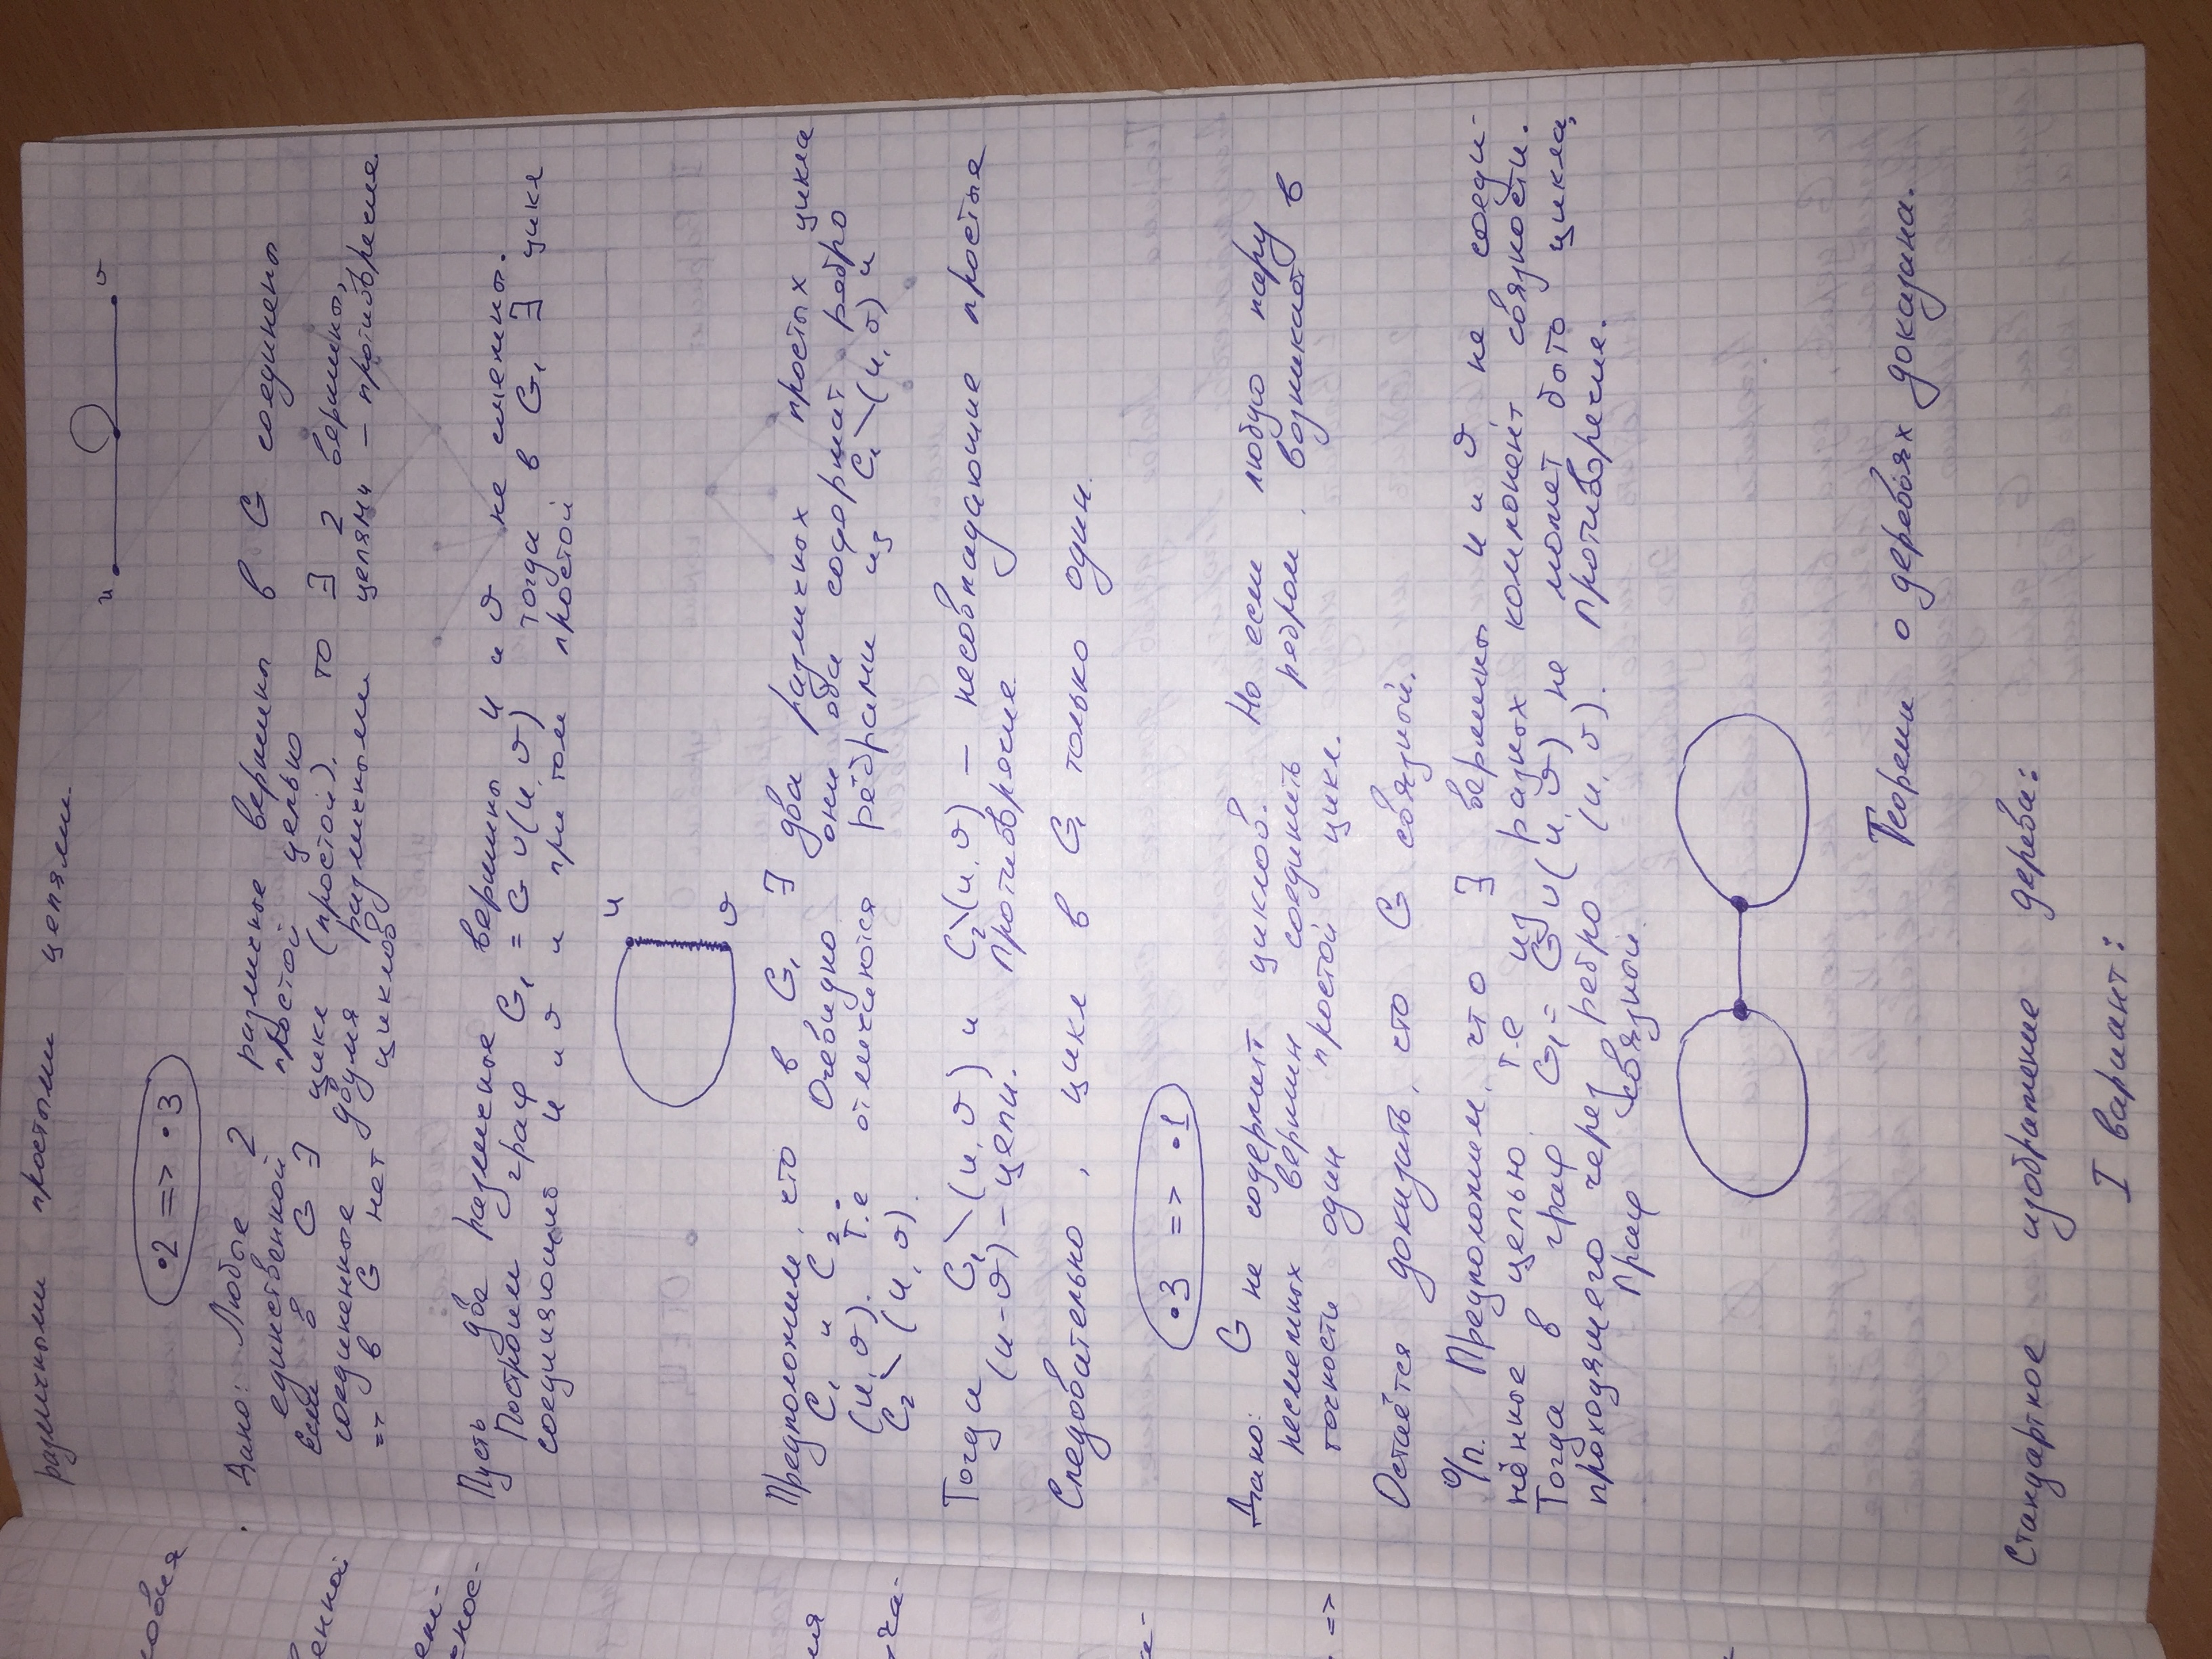 различными простыми цепями.
u v
•2 => •3
Дано: Любые 2 различные вершины в G соединены
единственной простой цепью
Если в G ∃ цикл (простой), то ∃ 2 вершины,
соединенные двумя различными цепями – противоречие.
=> в G нет циклов
Пусть две различные вершины u и v не смежны.
Построим граф G₁ = G ∪ (u, v) тогда в G₁ ∃ цикл
соединяющий u и v и при том простой
u
v
Предположим, что в G₁ ∃ два различных простых цикла
C₁ и C₂. Очевидно они оба содержат ребро
(u, v). Т.е отличаются рёбрами из C₁ \ (u, v) и
C₂ \ (u, v).
Тогда C₁ \ (u, v) и C₂ \ (u, v) – несовпадающие простые
(u-v) – цепи. Противоречие.
Следовательно, цикл в G₁ только один.
•3 => •1
Дано: G не содержит циклов. Но если любую пару
несмежных вершин соединить ребром, возникает в
точности один простой цикл.
Остаётся доказать, что G связной.
о/п. Предположим, что ∃ вершины u и v, не соеди-
нённые цепью, т.е из разных компонент связности.
Тогда в граф G₁ = G ∪ (u, v) не может быть цикла,
проходящего через ребро (u, v). Противоречие.
Граф связной.
Теорема о деревьях доказана.
Стандартное изображение дерева:
I вариант: